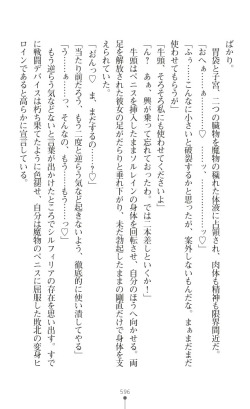 ばかり。
　胃袋と子宮、二つの臓物を魔物の穢れた体液に占領され、肉体も精神も限界間近だ。
「おへぁ……ぁ……♡　……ァッ、……ッ♡」
「ふぅ……こんなに小さいと破裂するかと思ったが、案外しないもんだな。まぁまだまだ
使わせてもらうが」
「牛頭、そろそろ私にも使わせてくださいよ」
「ん？　あぁ、興が乗って忘れておったわ。では二本差しといくか！」
　牛頭はペニスを挿入したままソルレインの身体を回転させ、自分のほうへ向かせる。両
足を解放された彼女の足がだらりと垂れ下がり、未だ勃起したままの剛直だけで身体を支
えられていた。
「おんっ♡　ま、まだするの……ォ？」
「当たり前だろう、もう二度と逆らう気など起きないよう、徹底的に使い潰してやる」
「う……ぁ……っ、そんなの、もう……もう……っ♡」
　もう逆らう気などないと言葉が出かけたところでシルフィリアの存在を思い出す。すで
に戦闘デバイスは朽ち果てたように色褪せ、自分は魔物のペニスに屈服した敗北の変身ヒ
ロインであると高らかに宣言している。
596